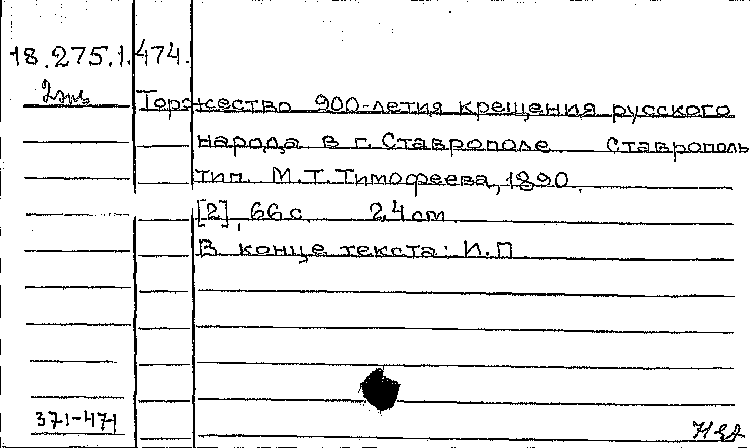 18.275.1.474.
2 экз
Торжество 900-летия крещения русского
народа в г. Ставрополе. Ставрополь
тип. М.Т.Тимофеева, 1890.
[2], 66 с. 24 см.
В конце текста: И.П
371-471